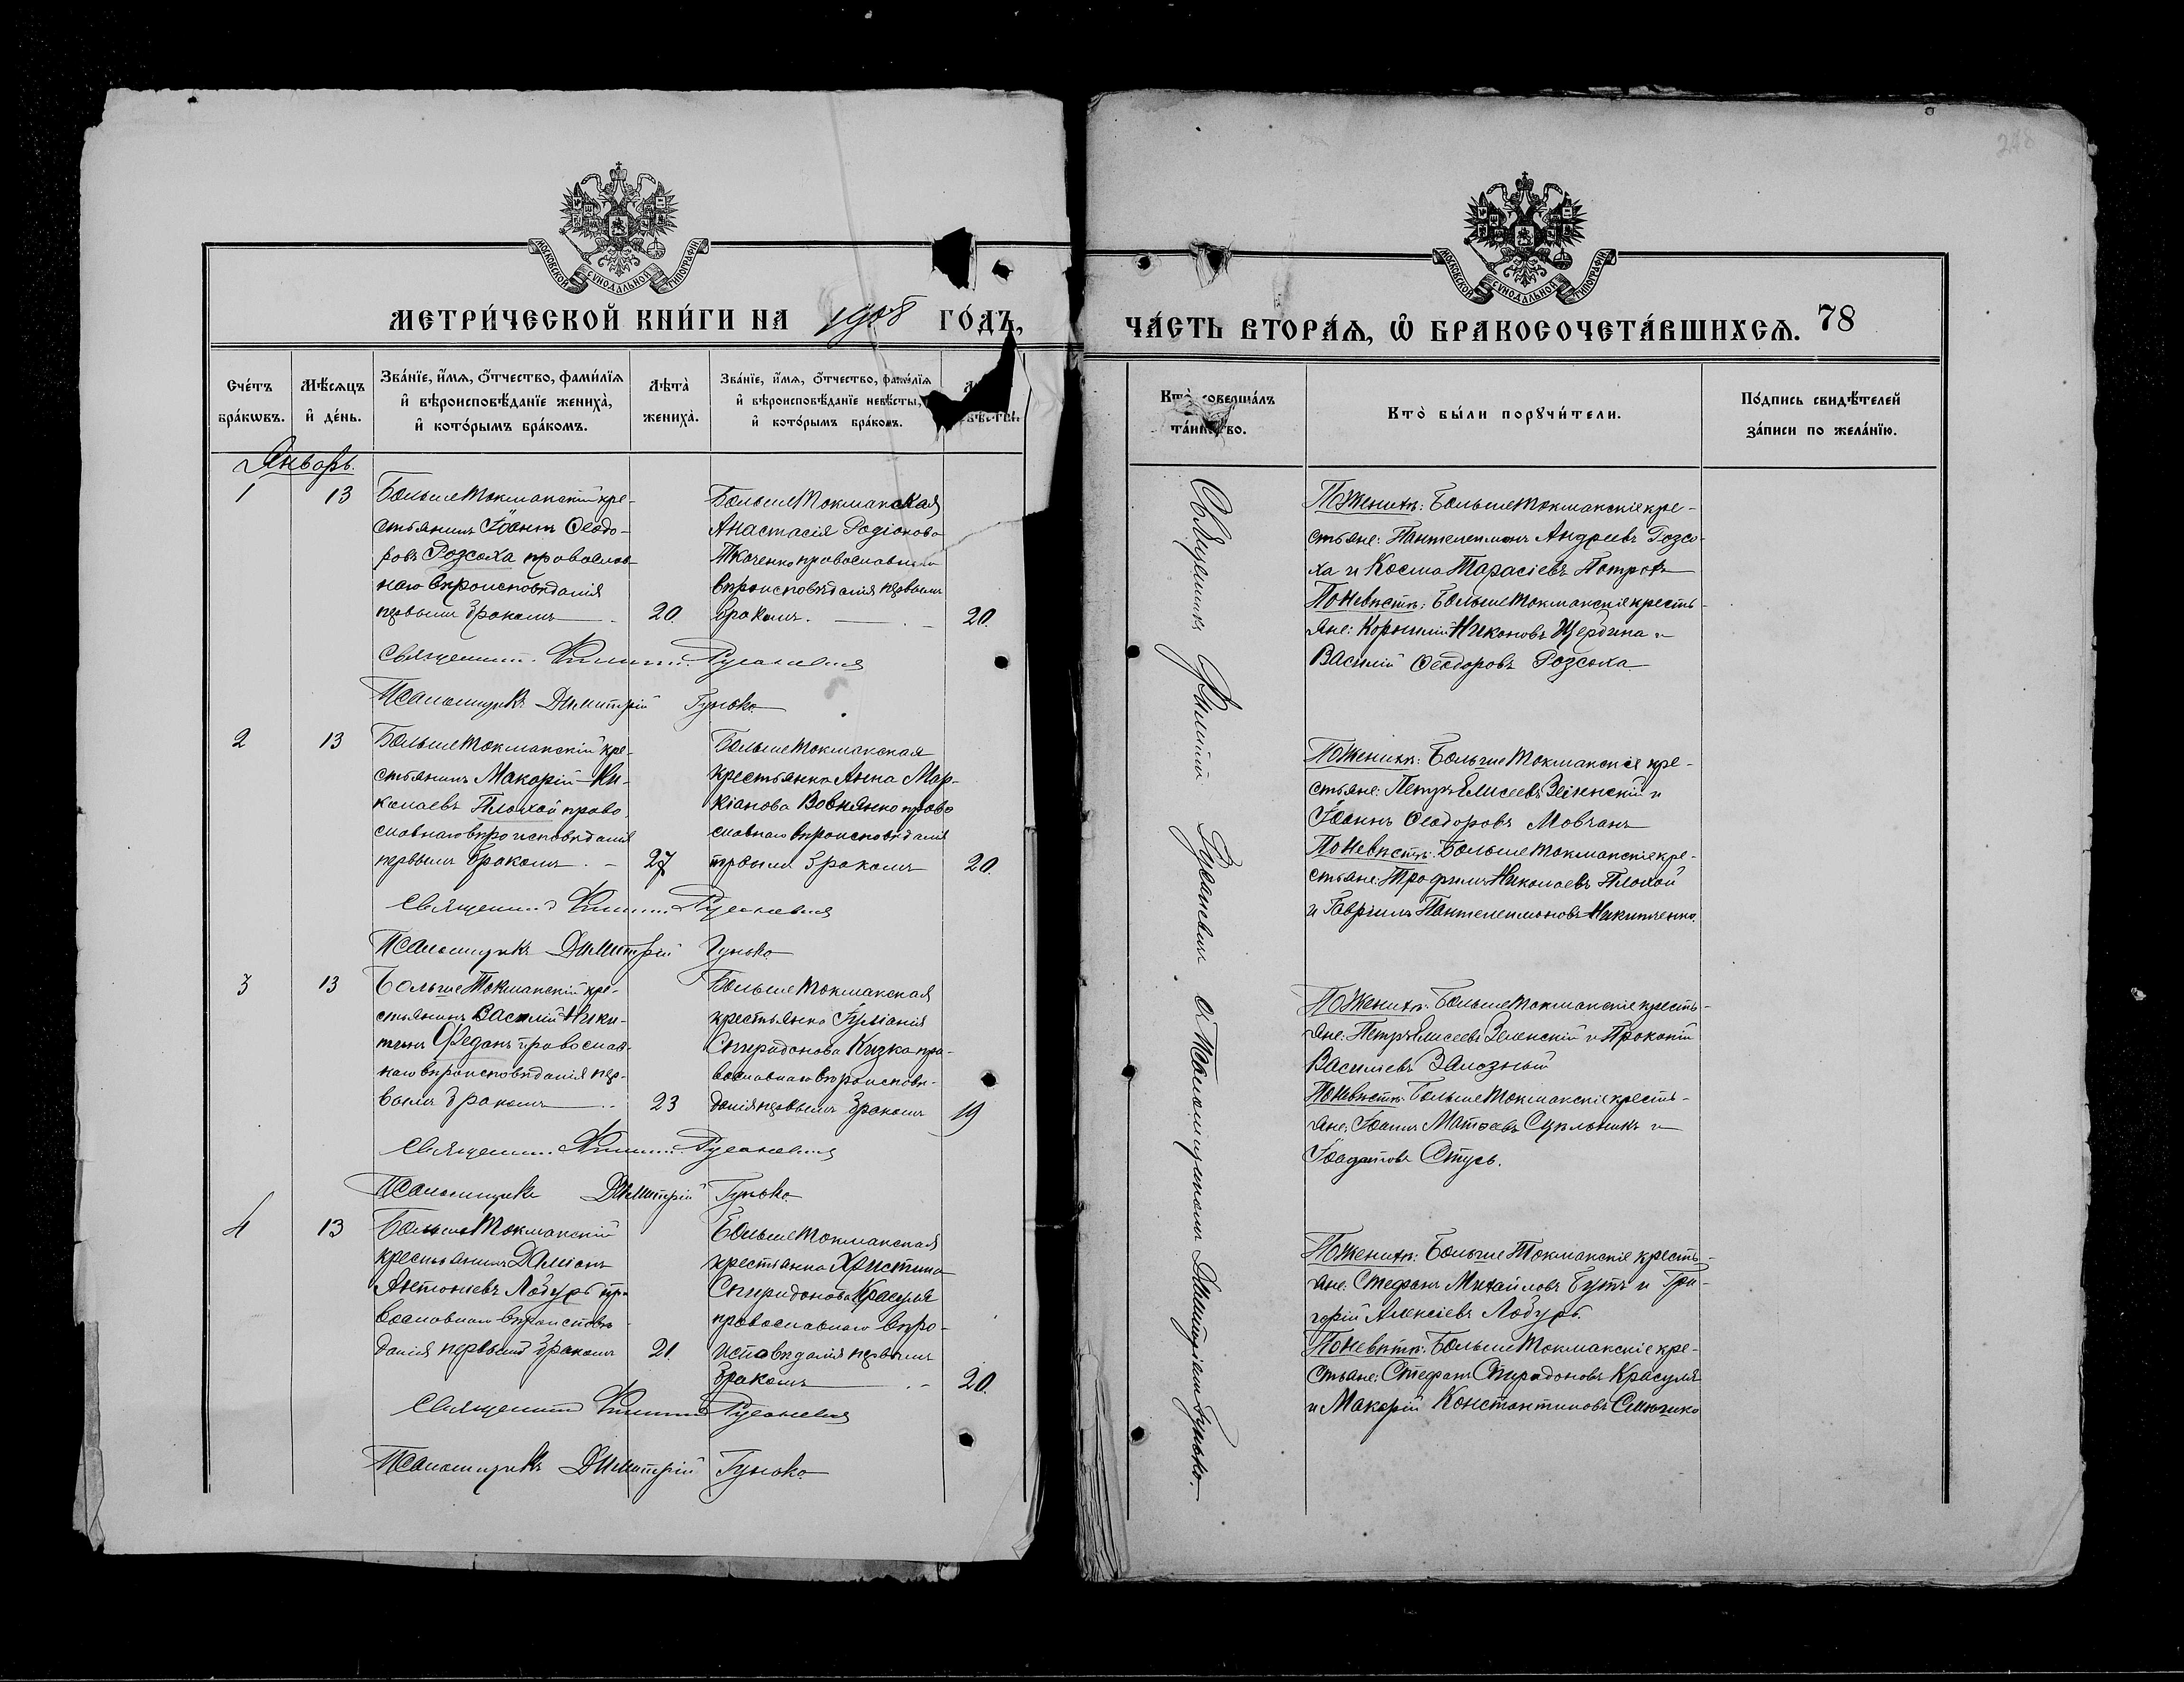 МОСКОВСКОЙ СѴНОДАЛЬНОЙ ТИПОГРАФІИ
МЕТРИ́ЧЕСКОЙ КНИ́ГИ НА 1908 ГО́ДЪ,
Сче́тъ бра́кѡвъ.
Мѣ́сяцъ и҆ де́нь.
Зва́нїе, и҆́мѧ, ѻ҆́тчество, фами́лїѧ
и҆ вѣроисповѣ́данїе жениха̀,
и҆ кото́рымъ бра́комъ.
Лѣта̀
жениха̀.
Зва́нїе, и҆́мѧ, ѻ҆́тчество, фами́лїѧ
и҆ вѣроисповѣ́данїе невѣ́сты,
и҆ кото́рымъ бра́комъ.
Январь.
1
13
Больше Токмакскій кре-
стьянинъ Іоаннъ Ѳеодо-
ровъ Розсоха православ-
наго вѣроисповѣданія
первымъ бракомъ
20.
Больше Токмакская
Анастасія Родіонова
Ткаченко православнаго
вѣроисповѣданія первымъ
бракомъ.
20.
Священникъ Филиппъ
Псаломщикъ Димитрій Гунько
2
13
Больше Токмакскій кре-
стьянинъ Макарій Ни-
колаевъ Плохой право
славнаго вѣроисповѣданія
первымъ бракомъ.
27
Больше Токмакская
крестьянка Анна Мар-
кіанова Вовнянко право
славнаго вѣроисповѣданія
первымъ бракомъ
20.
Священникъ Филиппъ
Псаломщикъ Димитрій Гунько
3
13
Больше Токмакскій кре-
стьянинъ Василій Ники-
тинъ Феданъ православ-
наго вѣроисповѣданія пер-
вымъ бракомъ
23
Больше Токмакская
крестьянка Іуліанія
Спиридонова Кизка пра-
вославнаго вѣроисповѣ-
данія первымъ бракомъ
19
Священникъ Филиппъ
Псаломщикъ Димитрій Гунько
4
13
Больше Токмакскій
крестьянинъ Даміанъ
Антоніевъ Лобурь пра
вославнаго вѣроисповѣ-
данія первымъ бракомъ
21.
Больше Токмакская
крестьянка Христина
Спиридонова Красуля
православнаго вѣро-
исповѣданія первымъ
бракомъ
20.
Священникъ Филиппъ
Псаломщикъ Димитрій Гунько
МОСКОВСКОЙ СѴНОДАЛЬНОЙ ТИПОГРАФІИ
ЧА́СТЬ ВТОРА́Ѧ, Ѽ БРАКОСОЧЕТА́ВШИХСѦ. 78
Кто̀ соверша́лъ
та́инство.
Кто̀ бы́ли порꙋчи́тели.
По́дпись свидѣ́телей
за́писи по жела́нїю.
Священникъ Филиппъ съ Псаломщикомъ Димитріемъ Гунько.
По женихѣ: Больше Токмакскіе кре-
стьяне: Пантелеимонъ Андреевъ Розсо-
ха и Косма Тарасіевъ Петровъ
По невѣстѣ: Больше Токмакскіе кресть-
яне: Корнилій Никоновъ Щербина и
Василій Ѳеодоровъ Розсоха
По женихѣ: Больше Токмакскіе кре-
стьяне: Петръ Елисеевъ Зеленскій и
Іоаннъ Ѳеодоровъ Мовчанъ
По невѣстѣ: Больше Токмакскіе кре-
стьяне: Трофимъ Николаевъ Плохой
и Гавріилъ Пантелеимоновъ Никитченко.
По женихѣ: Больше Токмакскіе кресть-
яне: Петръ Елисеевъ Зеленскій и Прокопій
Василіевъ Залозный
По невѣстѣ: Больше Токмакскіе кресть-
яне: Іоаннъ Матѳеевъ Сукльникъ и
Стусь.
По женихѣ: Больше Токмакскіе кресть-
яне: Стефанъ Михайловъ Бутъ и Гри-
горій Алексіевъ Лобурь.
По невѣстѣ: Больше Токмакскіе кре-
стьяне: Стефанъ Спиридоновъ Красуля
и Макарій Константиновъ